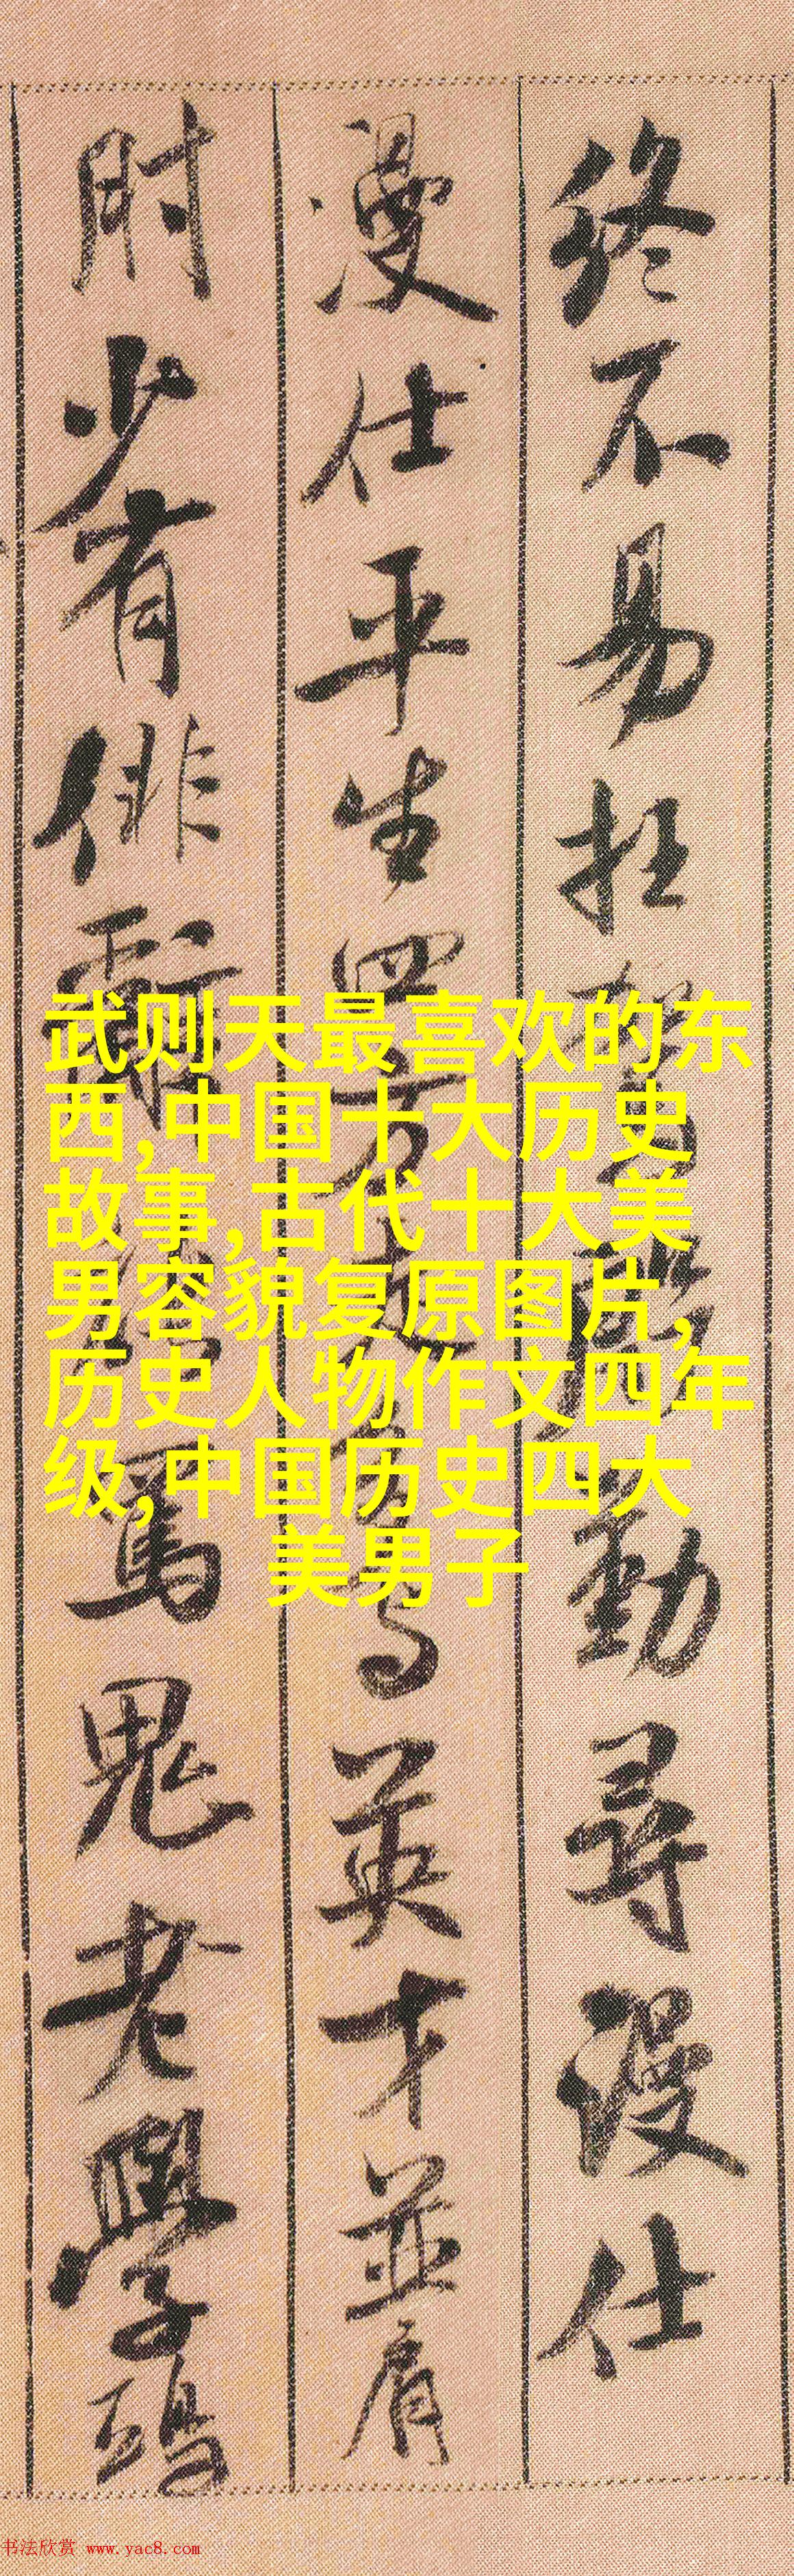 終不易枉駕殷勤尋漫仕
漫仕平生四方走多與英才並肩
肘少有俳辭能罵鬼老學鴟
武则天最喜欢的东
西,中国十大历史
故事,古代十大美
男容貌复原图片,
历史人物作文四年
级,中国历史四大
美男子
书法欣赏 www.yac8.com